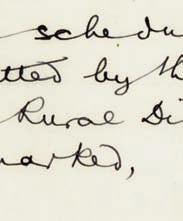 schedu
tted by th
Rural Di
marked,